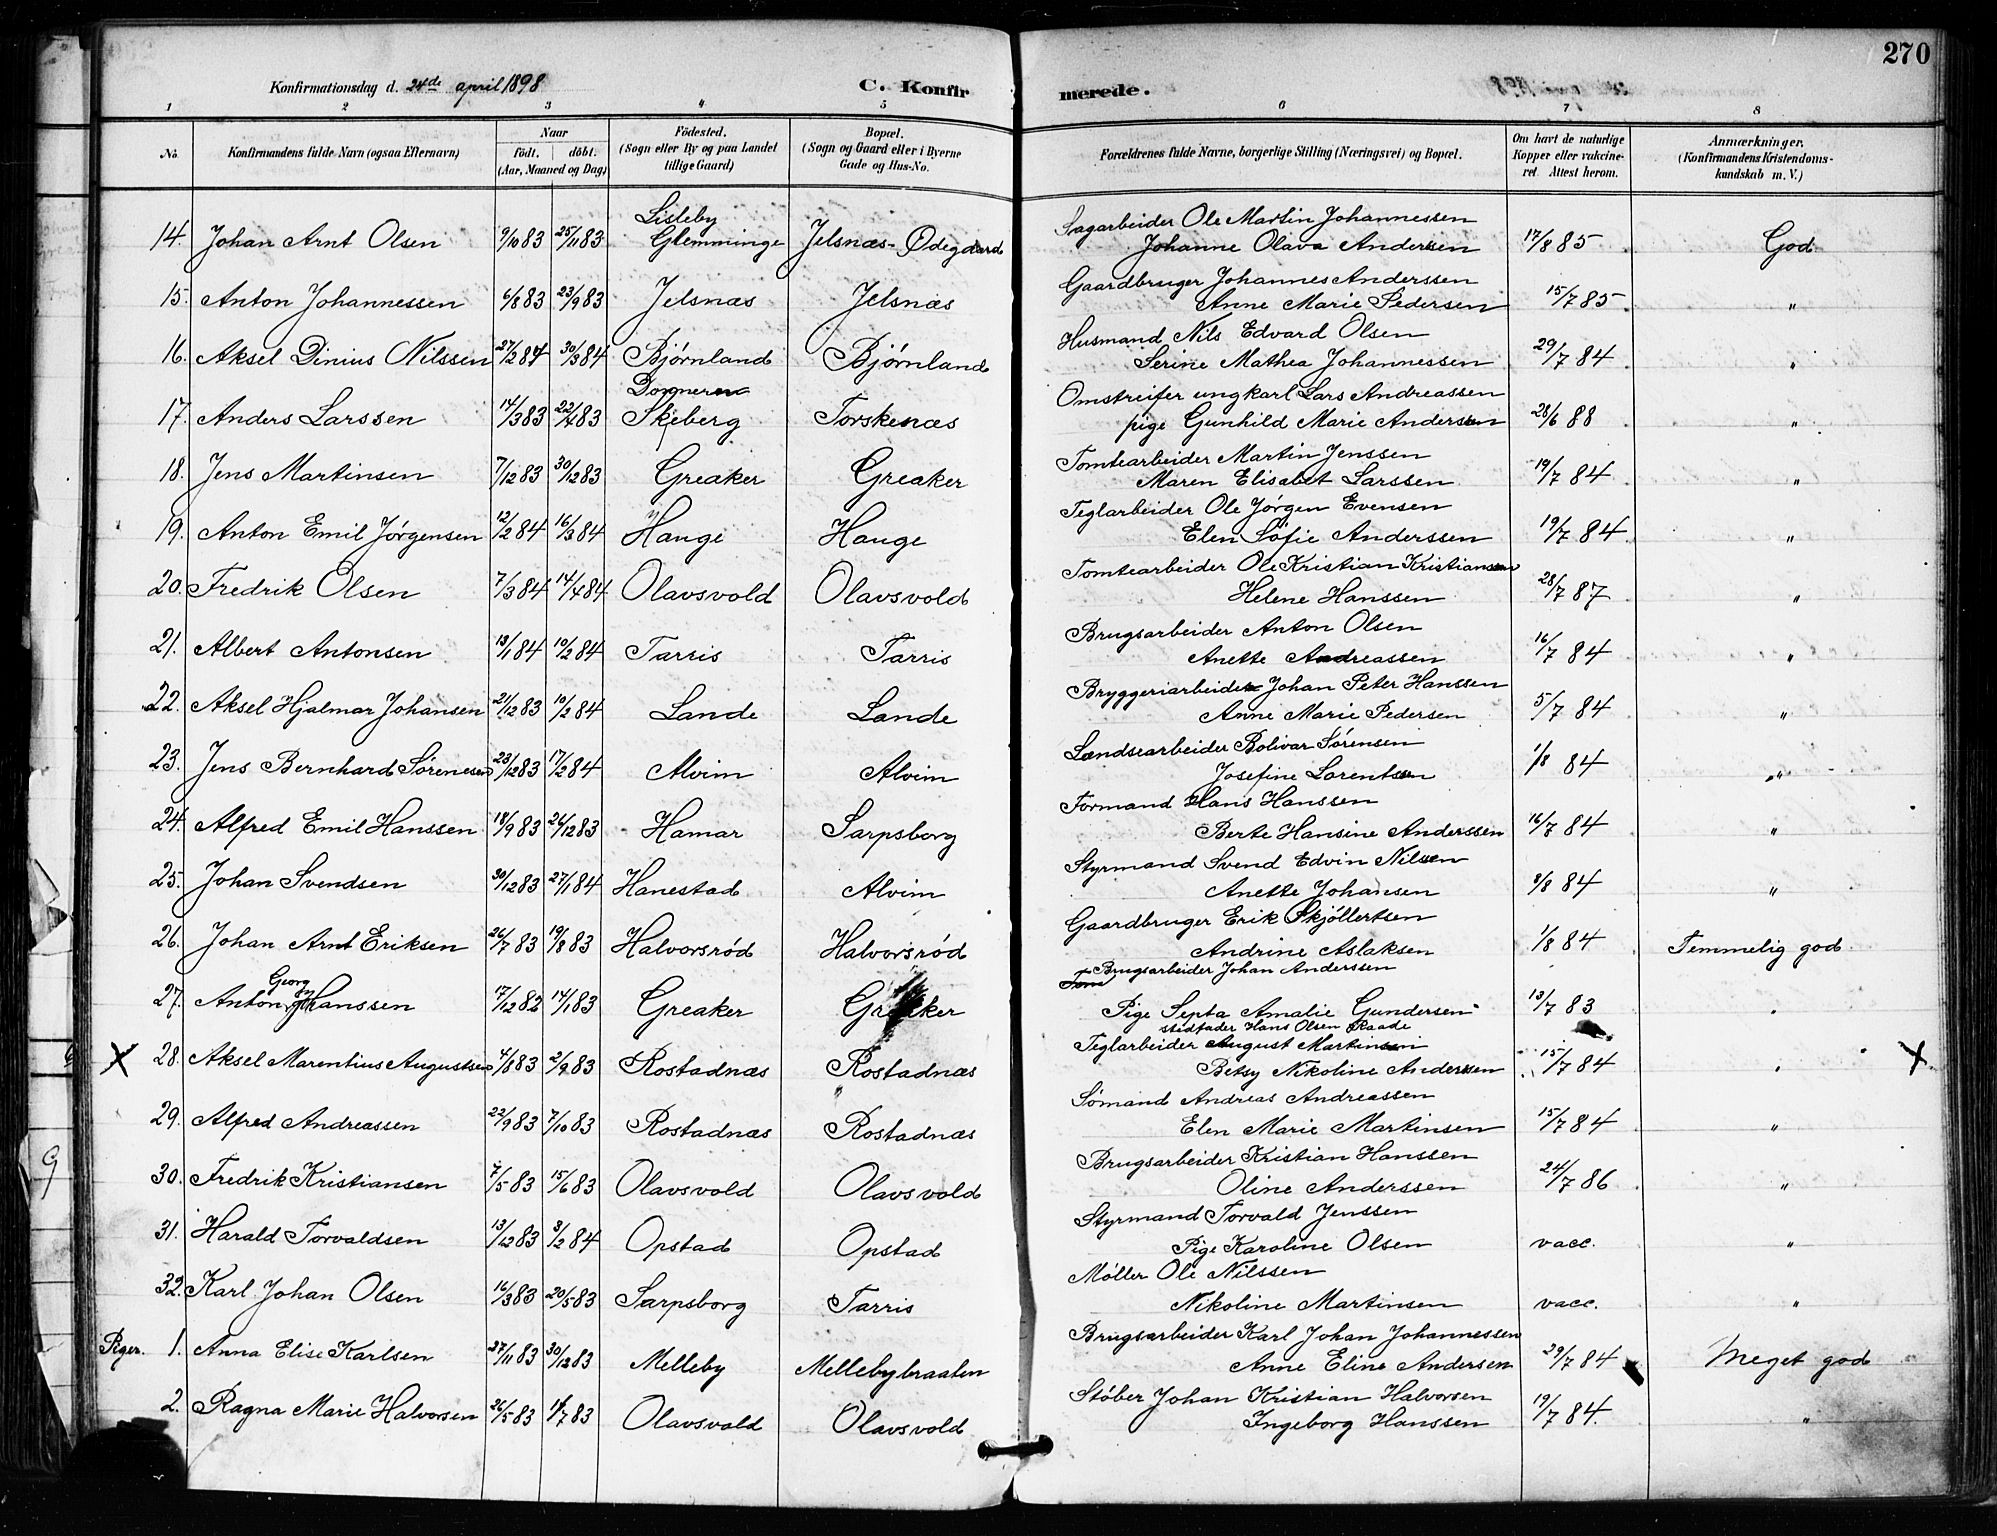 270
Konfirmationsdag d. 24de april 1898
C. Konfirmerede.
1 2 3 " 5 6 7 8
No. | Konfirmandens fulde Navn (ogsaa Efternavn) | Naar født. | døbt. (Aar, Maaned og Dag) | Födested. (Sogn eller By og paa Landet tillige Gaard) | Bopæl. (Sogn og Gaard eller i Byerne Gade og Hus-No. | Forældrenes fulde Navne, borgerlige Stilling (Næringsvei) og Bopæl. | Om havt de naturlige Kopper eller vakcineret. Attest herom. | Anmærkninger. (Konfirmandens Kristendomskundskab m. V.)
14. Johan Arnt Olsen 9/10 83 25/11 83 Lisleby Glemminge Jelsnæs-Ødegaard Sagarbeider Ole Martin Johannessen
Johanne Olava Andersen 17/8 85 God
15. Anton Johannessen 6/8 83 23/9 83 Jelsnæs Jelsnæs Gaardbruger Johannes Anderssen
Anne Marie Pedersen 15/7 85 "
16. Aksel Dinius Nilssen 27/2 84 30/3 84 Bjørnland Bjørnland Husmand Nils Edvard Olsen
Serine Mathea Johannessen 29/7 84 "
17. Anders Larssen 14/3 83 22/4 83 Skjeberg Torskenæs Omstreifer ungkarl Lars Andreassen
pige Gunhild Marie Andersen 28/6 88 "
18. Jens Martinsen 7/12 83 30/12 83 Greaker Greaker Tomtearbeider Martin Jenssen
Maren Elisabet Larssen 19/7 84 "
19. Anton Emil Jørgensen 12/2 84 16/3 84 Hauge Hauge Teglarbeider Ole Jørgen Evensen
Elen Sofie Anderssen 19/7 84 "
20. Fredrik Olsen 7/3 84 14/4 84 Olavsvold Olavsvold Tomtearbeider Ole Kristian Kristiansen
Helene Hanssen 28/7 87 "
21. Albert Antonsen 13/1 84 10/2 84 Tarris Tarris Brugsarbeider Anton Olsen
Anette Andreassen 16/7 84 "
22. Aksel Hjalmar Johansen 21/12 83 10/2 84 Lande Lande Bryggeriarbeider Johan Peter Hanssen
Anne Marie Pedersen 5/7 84 "
23. Jens Bernhard Sörensen 23/12 83 17/2 84 Alvim Alvim Lændsearbeider Bolivar Sørensen
Josefine Lorentsen 1/8 84 "
24. Alfred Emil Hanssen 18/9 83 26/12 83 Hamar Sarpsborg Formand Hans Hanssen
Berte Hansine Anderssen 16/7 84 "
25. Johan Svendsen 30/12 83 27/1 84 Hanestad Alvim Styrmand Svend Edvin Nilsen
Anette Johansen 8/8 84 "
26. Johan Arnt Eriksen 26/7 83 19/8 83 Halvorsrød Halvorsrød Gaardbruger Erik Skjöllertsen
Andrine Aslaksen 1/8 84 Temmelig god
27. Anton Georg Hanssen 17/12 82 14/1 83 Greaker Greaker Brugsarbeider Johan Anderssen
Pige Septa Amalie Gundersen 13/7 83 "
stedfader Hans Olsen Raade
X 28. Aksel Marentius Augustsen 4/8 83 2/9 83 Rostadnæs Rostadnæs Teglarbeider August Martinsen
Betsy Nikoline Andersen 15/7 84 " X
29. Alfred Andreassen 22/9 83 7/10 83 Rostadnæs Rostadnæs Sömand Andreas Andreassen
Elen Marie Martinsen 15/7 84 "
30. Fredrik Kristiansen 7/5 83 15/6 83 Olavsvold Olavsvold Brugsarbeider Kristian Hanssen
Oline Anderssen 24/7 86 "
31. Harald Torvaldsen 13/12 83 3/2 84 Opstad Opstad Styrmand Torvald Jenssen
Pige Karoline Olsen vacc. "
32. Karl Johan Olsen 16/3 83 20/5 83 Sarpsborg Tarris Møller Ole Nilssen
Nikoline Martinsen vacc. "
Piger. 1. Anna Elise Karlsen 27/11 83 30/12 83 Melleby Mellebybraaten Brugsarbeider Karl Johan Johannessen
Anne Eline Andersen 29/7 84 Meget god
2. Ragna Marie Halvorsen 26/5 83 1/7 83 Olavsvold Olavsvold Stöber Johan Kristian Halvorsen
Ingeborg Hanssen 19/7 84 "